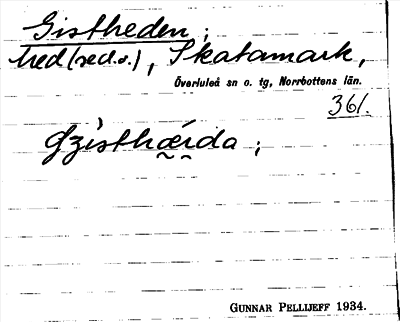 Gistheden ;
hed (sed.o.), Skatamark,
Överluleå sn o. tg, Norrbottens län.
361.
Gʒ̀istħǽi̯da ;
GUNNAR PELLIJEFF 1934.